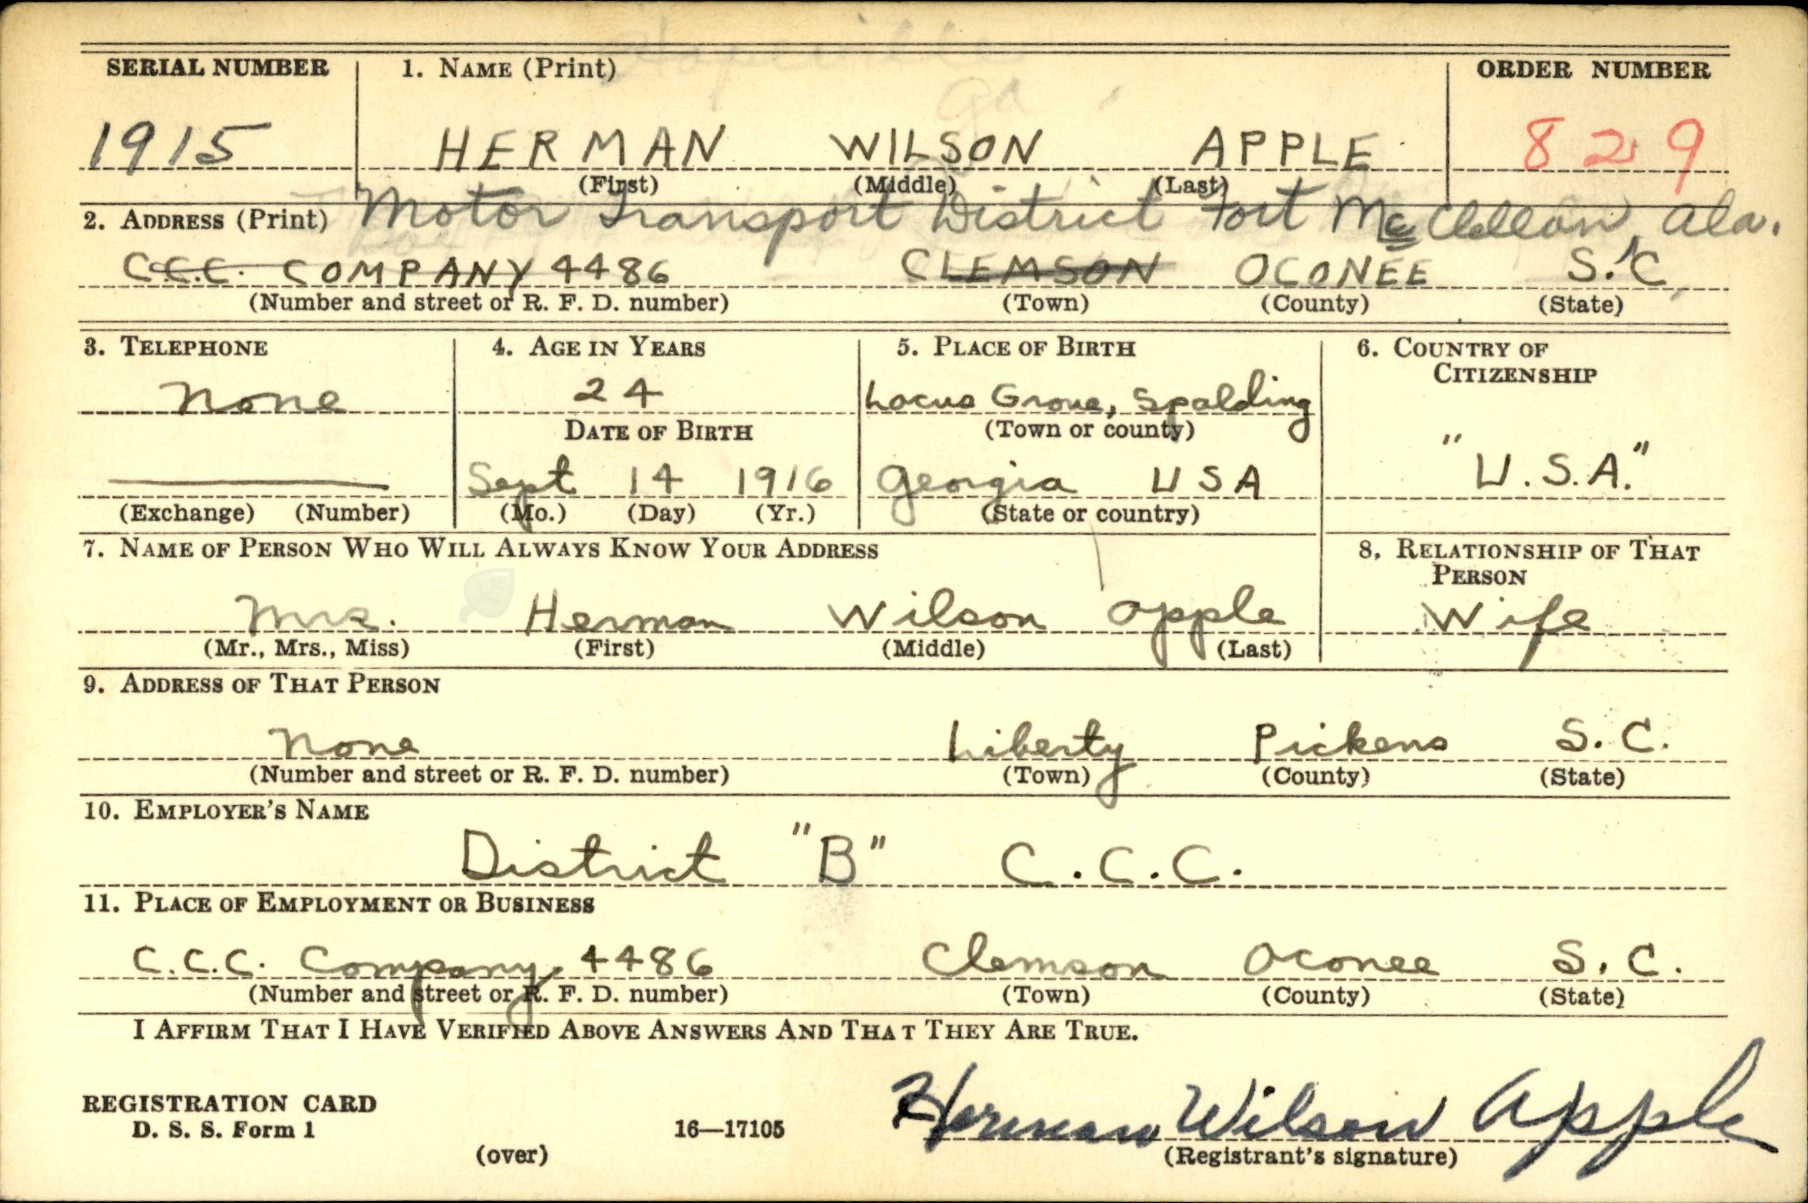 Hapeville
Ga
SERIAL NUMBER 1. NAME (Print) ORDER NUMBER
1915 HERMAN WILSON APPLE 829
(First) (Middle) (Last)
Motor Transport District Fort McClellan, Ala.
2. ADDRESS (Print)
C.C.C. COMPANY 4486 CLEMSON OCONEE S.C.
(Number and street or R. F. D. number) (Town) (County) (State)
3. TELEPHONE 4. AGE IN YEARS 5. PLACE OF BIRTH 6. COUNTRY OF
CITIZENSHIP
None 24 Locus Grove, Spalding
DATE OF BIRTH (Town or county)
Sept 14 1916 Georgia USA "U.S.A."
(Exchange) (Number) (Mo.) (Day) (Yr.) (State or country)
7. NAME OF PERSON WHO WILL ALWAYS KNOW YOUR ADDRESS 8. RELATIONSHIP OF THAT
PERSON
Mrs. Herman Wilson Apple Wife
(Mr., Mrs., Miss) (First) (Middle) (Last)
9. ADDRESS OF THAT PERSON
None Liberty Pickens S.C.
(Number and street or R. F. D. number) (Town) (County) (State)
10. EMPLOYER'S NAME
District "B" C.C.C.
11. PLACE OF EMPLOYMENT OR BUSINESS
C.C.C. Company 4486 Clemson Oconee S.C.
(Number and street or R. F. D. number) (Town) (County) (State)
I AFFIRM THAT I HAVE VERIFIED ABOVE ANSWERS AND THAT THEY ARE TRUE.
REGISTRATION CARD
D. S. S. Form 1 16—17105 Herman Wilson Apple
(over) (Registrant's signature)